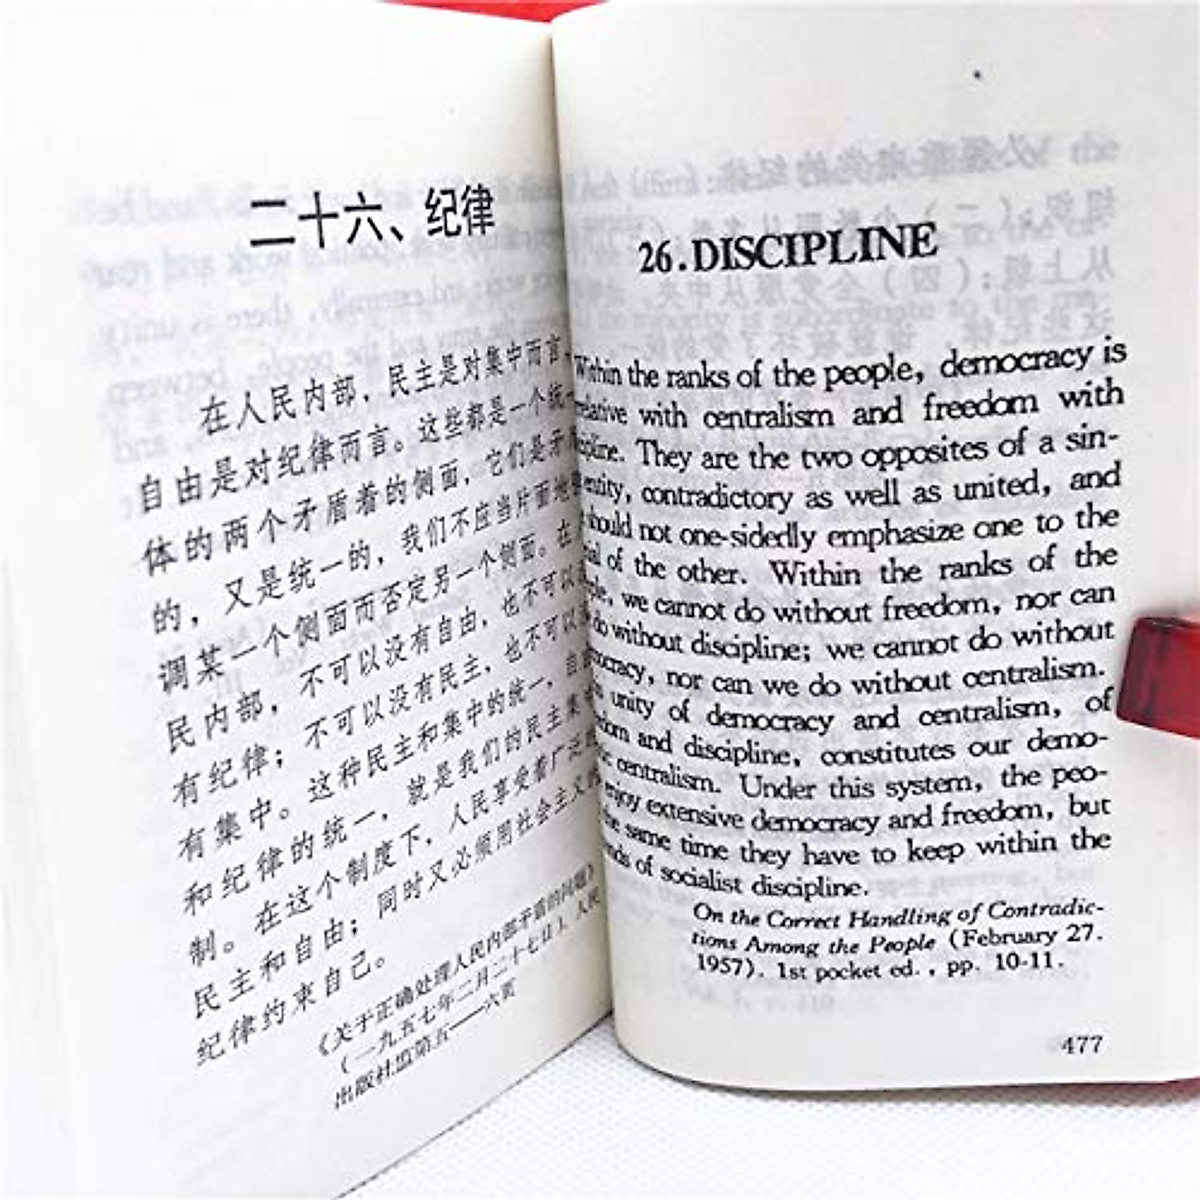 二十六、纪律
在人民内部，民主是对集中而言，
自由是对纪律而言。这些都是一个统一
体的两个矛盾着的侧面，它们是矛
的，又是统一的，我们不应当片面地
调某一个侧面而否定另一个侧面。在
民内部，不可以没有自由，也不可以
有纪律；不可以没有民主，也不可以
有集中。这种民主和集中的统一，自由
和纪律的统一，就是我们的民主集
制。在这个制度下，人民享受着广泛
民主和自由；同时又必须用社会主义
纪律约束自己。
《关于正确处理人民内部矛盾的问题》
（一九五七年二月二十七日），人民
出版社
26.DISCIPLINE
Within the ranks of the people, democracy is
relative with centralism and freedom with
They are the two opposites of a sin-
entity, contradictory as well as united, and
should not one-sidedly emphasize one to the
of the other. Within the ranks of the
we cannot do without freedom, nor can
do without discipline; we cannot do without
nor can we do without centralism.
unity of democracy and centralism, of
and discipline, constitutes our demo-
centralism. Under this system, the peo-
enjoy extensive democracy and freedom, but
same time they have to keep within the
of socialist discipline.
On the Correct Handling of Contradic-
tions Among the People (February 27.
1957). 1st pocket ed. , pp. 10-11.
477